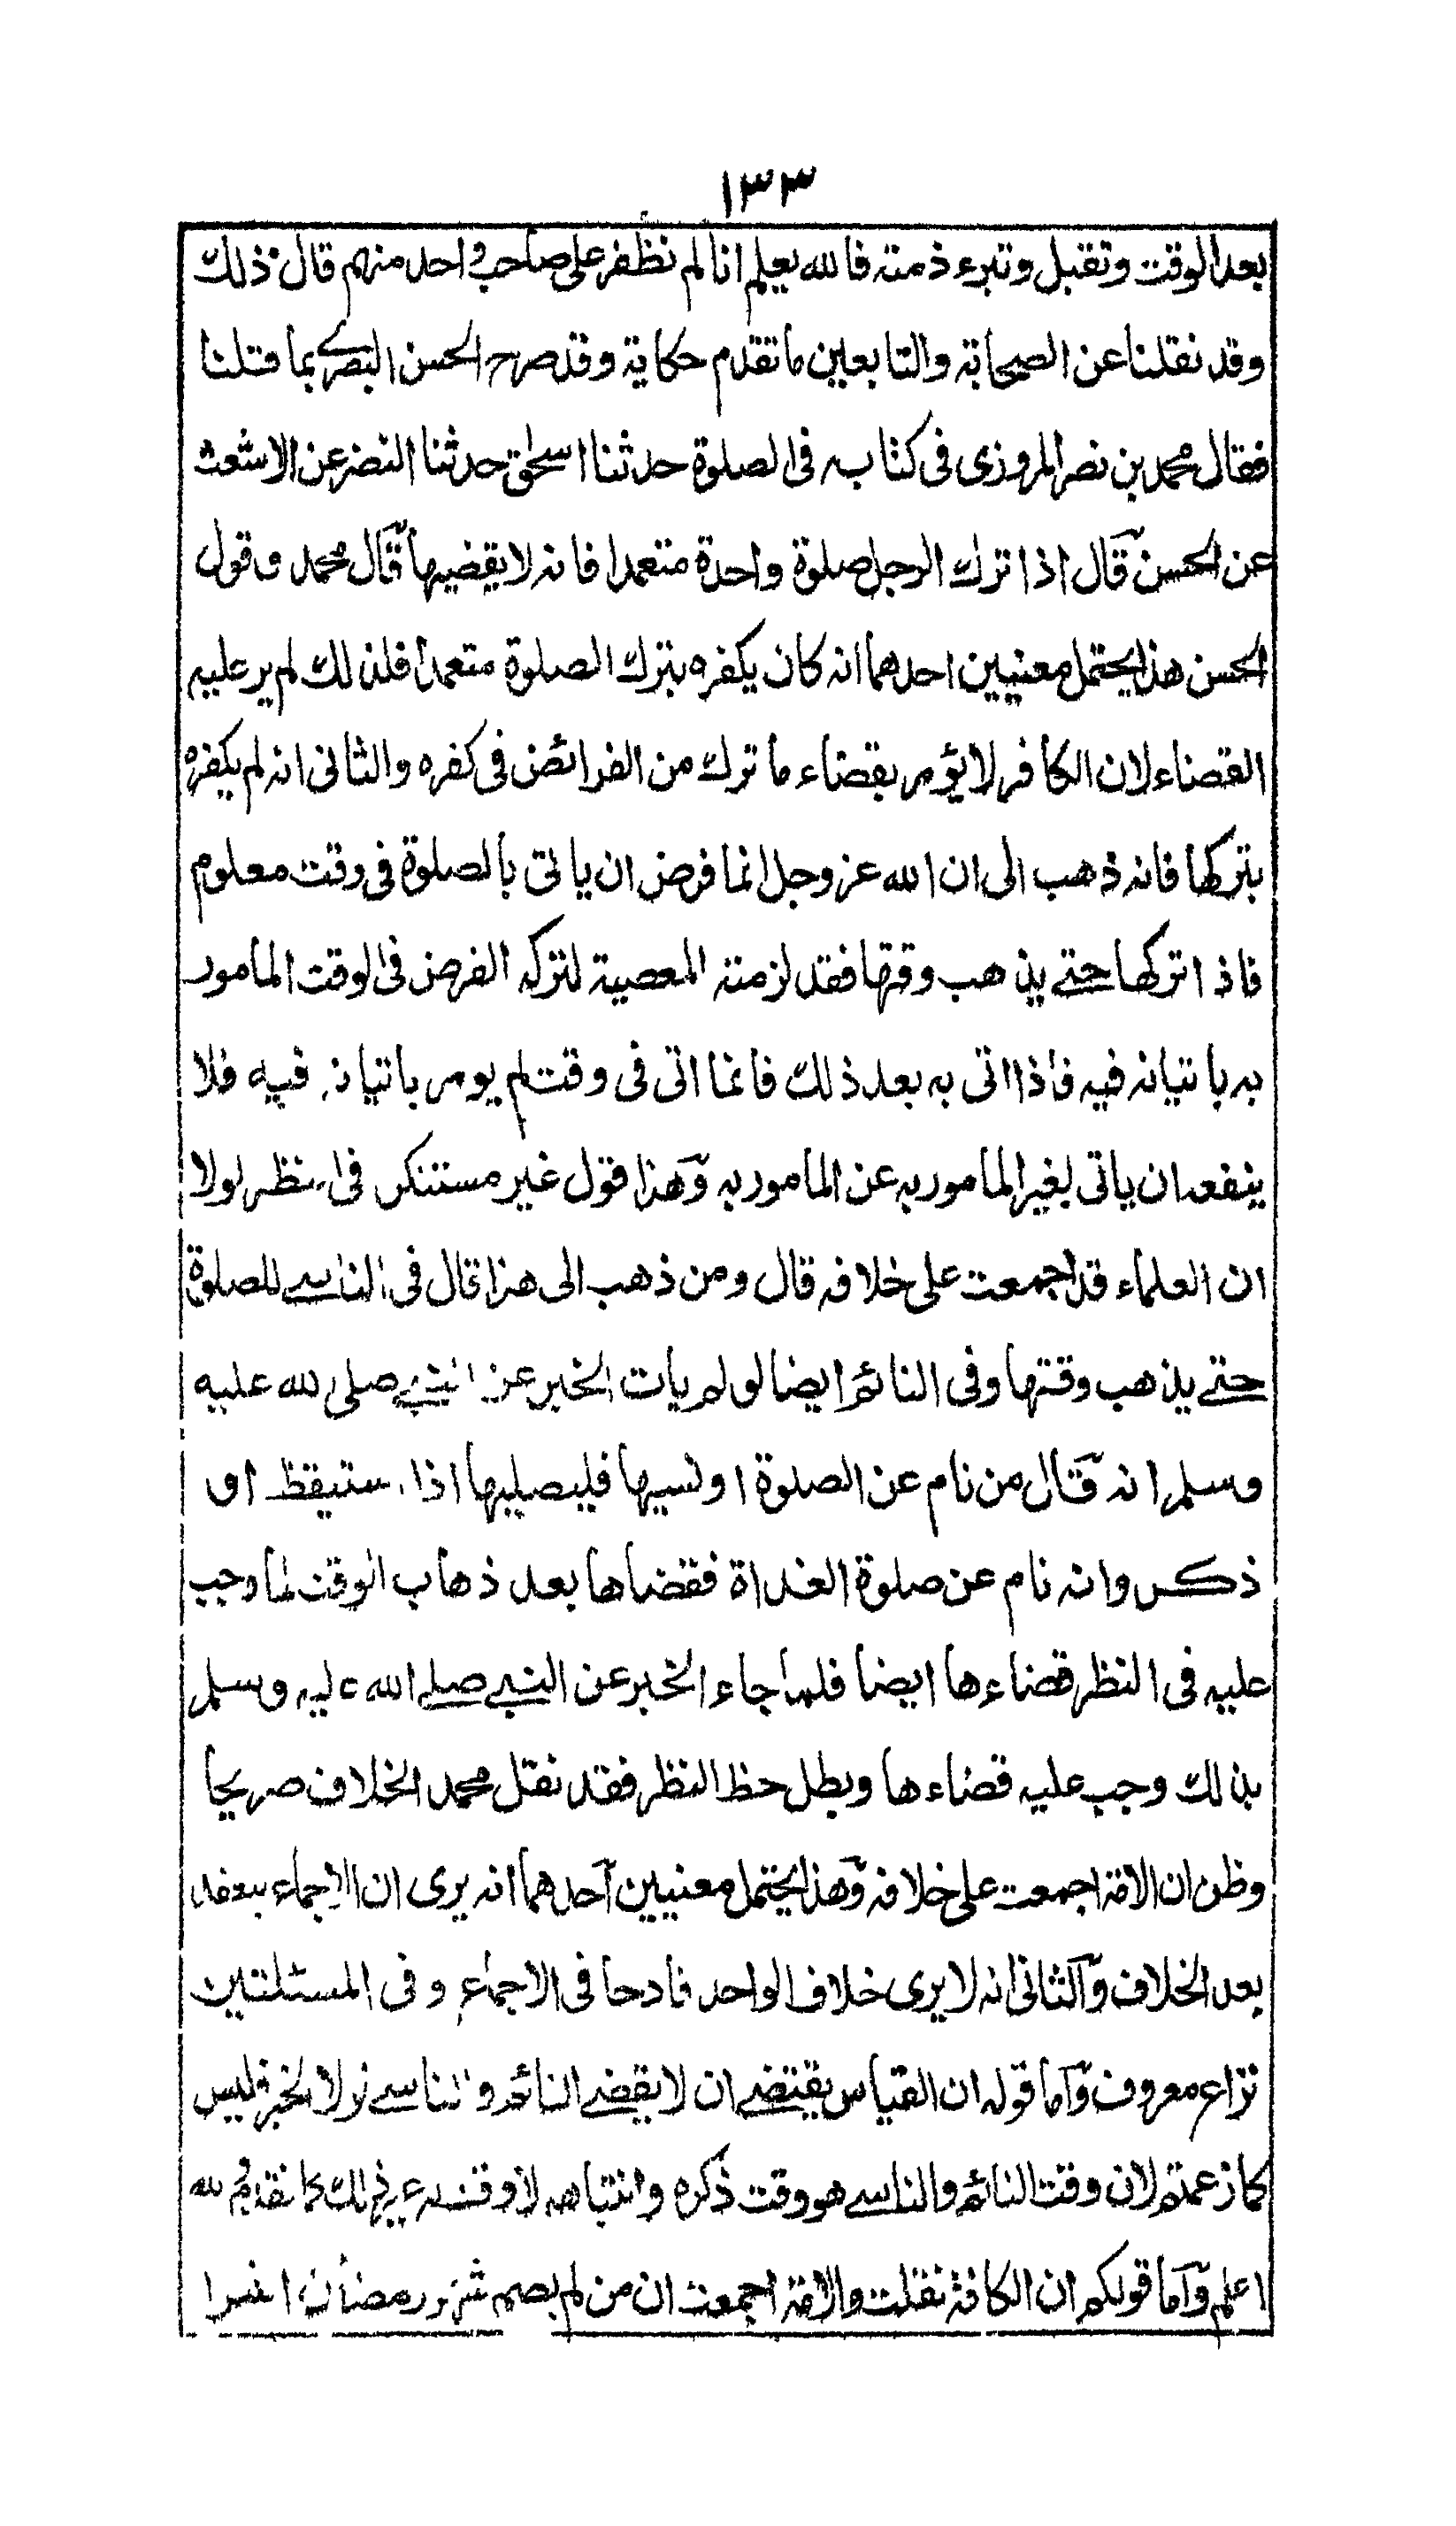 ١٣٣
بعد الوقت وتقبل وتبرء ذمته فالله يعلم انا لم نظفر على صاحب واحد منهم قال ذلك
وقد نقلنا عن الصحابة والتابعين ما تقدم حكاية وقد صرح الحسن البصرى بما قلنا
فقال محمد بن نصر المروزى فى كتابه فى الصلوة حدثنا اسحٰق حدثنا النضر عن الاشعث
عن الحسن قال اذا ترك الرجل صلوة واحدة متعمدا فانه لا يقضيها قال محمد وقول
الحسن هذا يحتمل معنيين احدهما انه كان يكفره بترك الصلوة متعمدا فلذلك لم ير عليه
القضاء لان الكافر لا يؤمر بقضاء ما ترك من الفرائض فى كفره والثانى انه لم يكفره
بتركها فانه ذهب الى ان الله عز وجل انما فرض ان ياتى بالصلوة فى وقت معلوم
فاذا تركها حتے يذهب وقتها فقد لزمته المعصية لتركه الفرض فى الوقت المامور
به باتيانه فيه فاذا اتى به بعد ذلك فانما اتى فى وقت لم يومر باتيانه فيه فلا
ينفعه ان ياتى بغير المامور به عن المامور به وهذا قول غير مستنكر فى النظر لولا
ان العلماء قد اجمعت على خلافه قال ومن ذهب الى هذا قال فى الناسے للصلوة
حتے يذهب وقتها وفى النائم ايضا لو لم يات الخبر عن النبے صلى الله عليه
وسلم انه قال من نام عن الصلوة او نسيها فليصليها اذا استيقظ او
ذكر وانه نام عن صلوة الغداة فقضاها بعد ذهاب الوقت لما وجب
عليه فى النظر قضاءها ايضا فلما جاء الخبر عن النبے صلے الله عليه وسلم
بذلك وجب عليه قضاءها وبطل حظ النظر فقد نقل محمد الخلاف صريحا
وظن ان الامة اجمعت على خلافه وهذا يحتمل معنيين احدهما انه يرى ان الاجماع ينعقد
بعد الخلاف والثانى انه لا يرى خلاف الواحد قادحا فى الاجماع وفى المسئلتين
نزاع معروف واما قوله ان القياس يقتضے ان لا يقضے النائم والناسے لولا الخبر فليس
كما زعمتم لان وقت النائم والناسے هو وقت ذكره وانتباهه لا وقت له غير ذلك كما تقدم والله
اعلم واما قولكم ان الكافة نقلت والامة اجمعت ان من لم يصم شهر رمضان اشرا